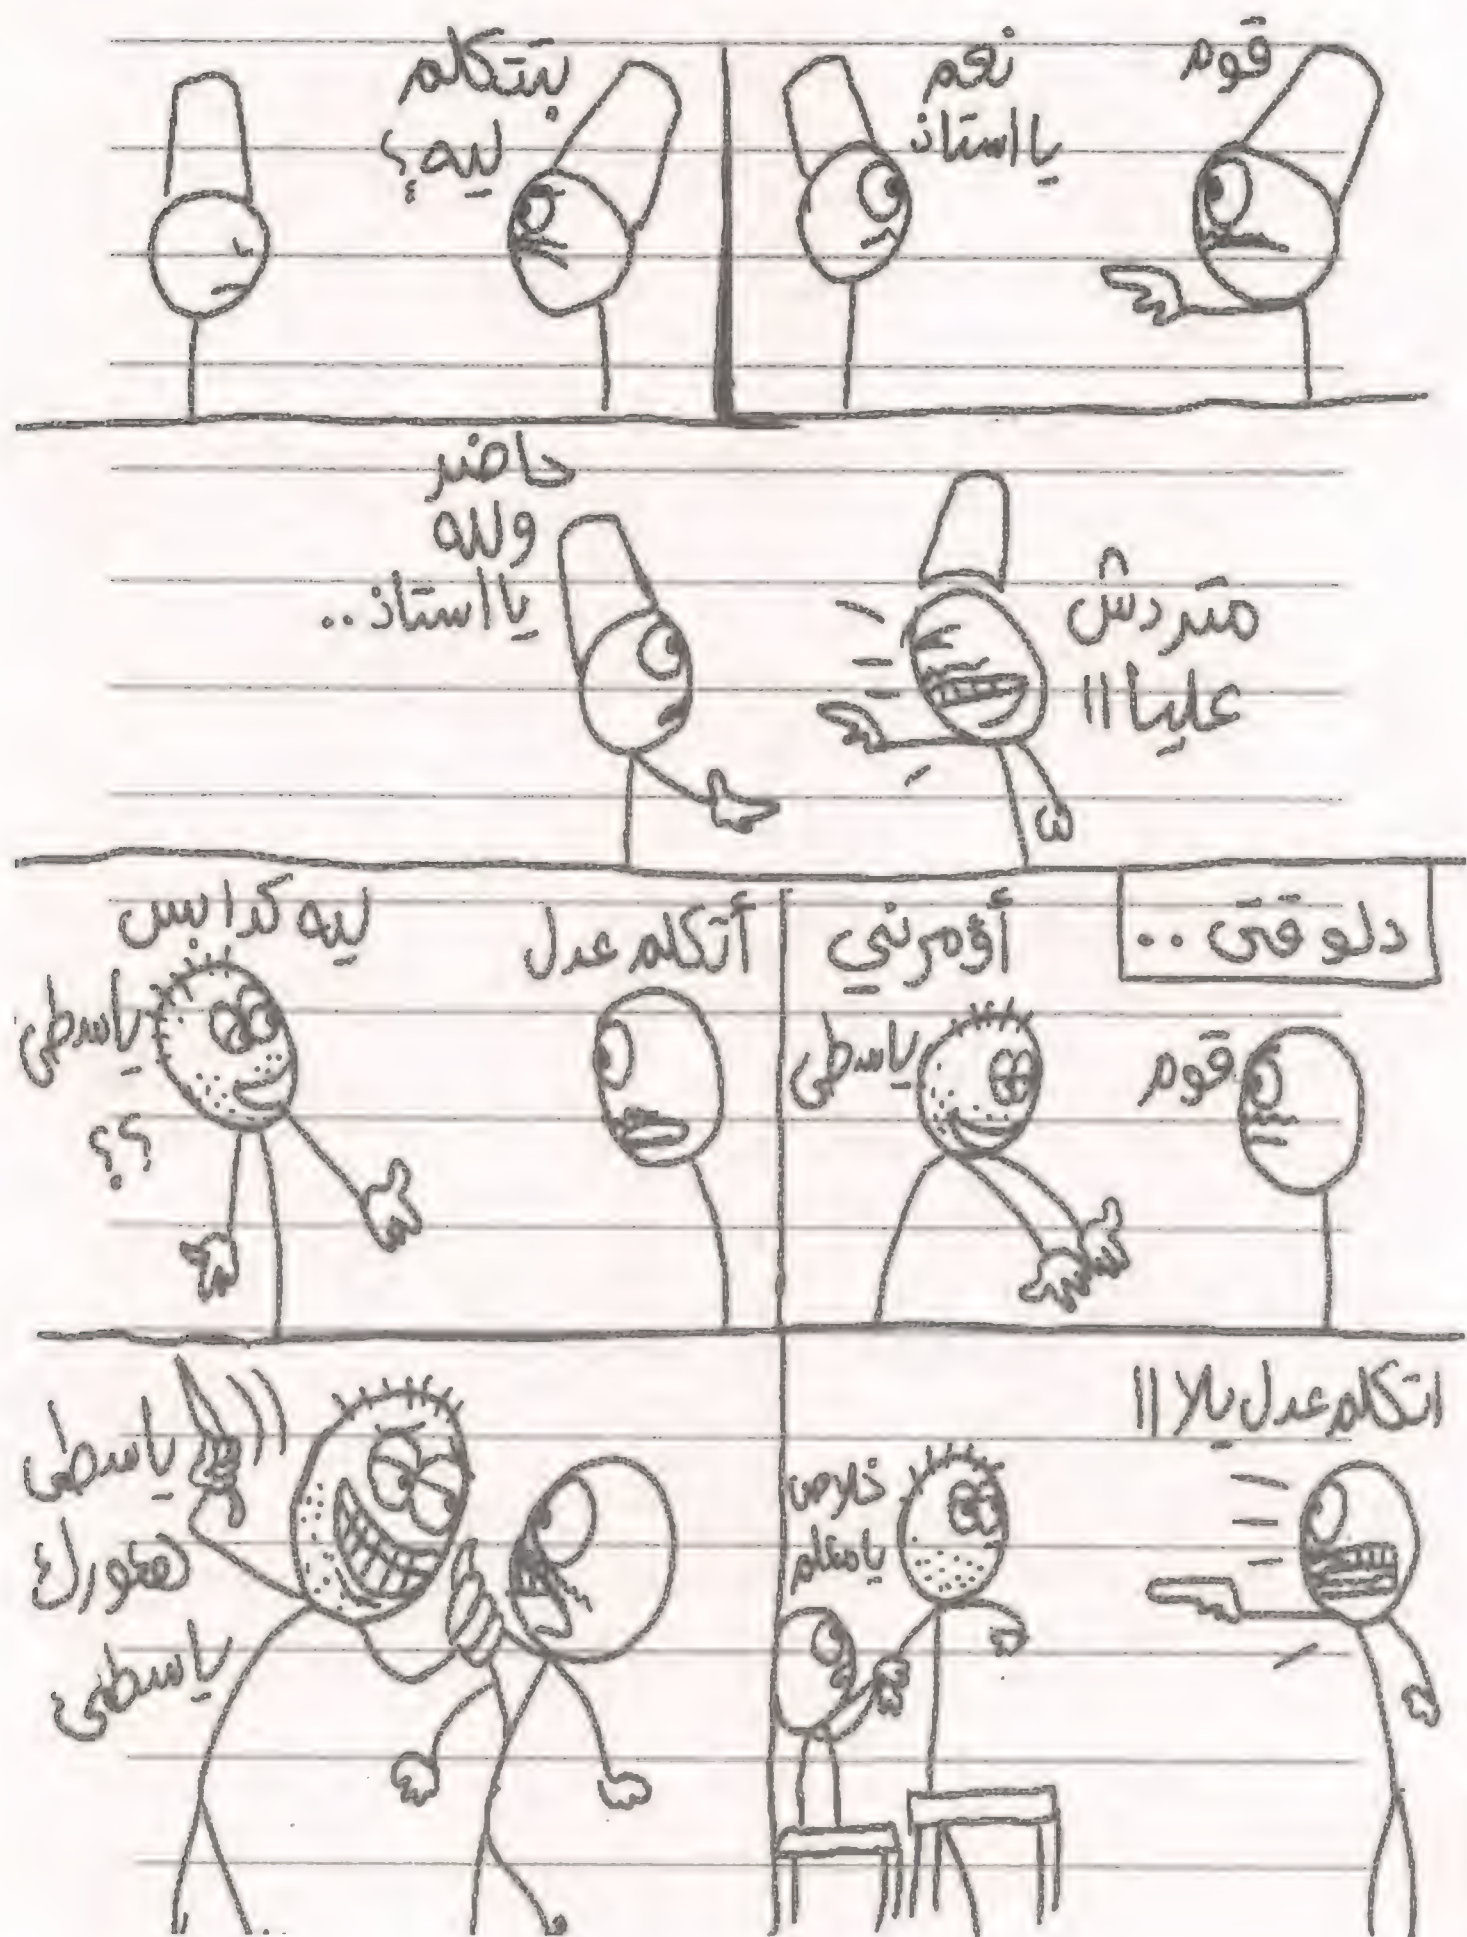 قوم
نعم
يا استاذ
بتتكلم
ليه؟
متردش
عليا!!
حاضر
ولله
يا استاذ..
دلوقتى..
قوم
أؤمرني
ياسطى
أتكلم عدل
ليه كدا بس
ياسطى
؟؟
اتكلم عدل يلا!!
خلاص
يا معلم
ياسطى
هعورك
ياسطى